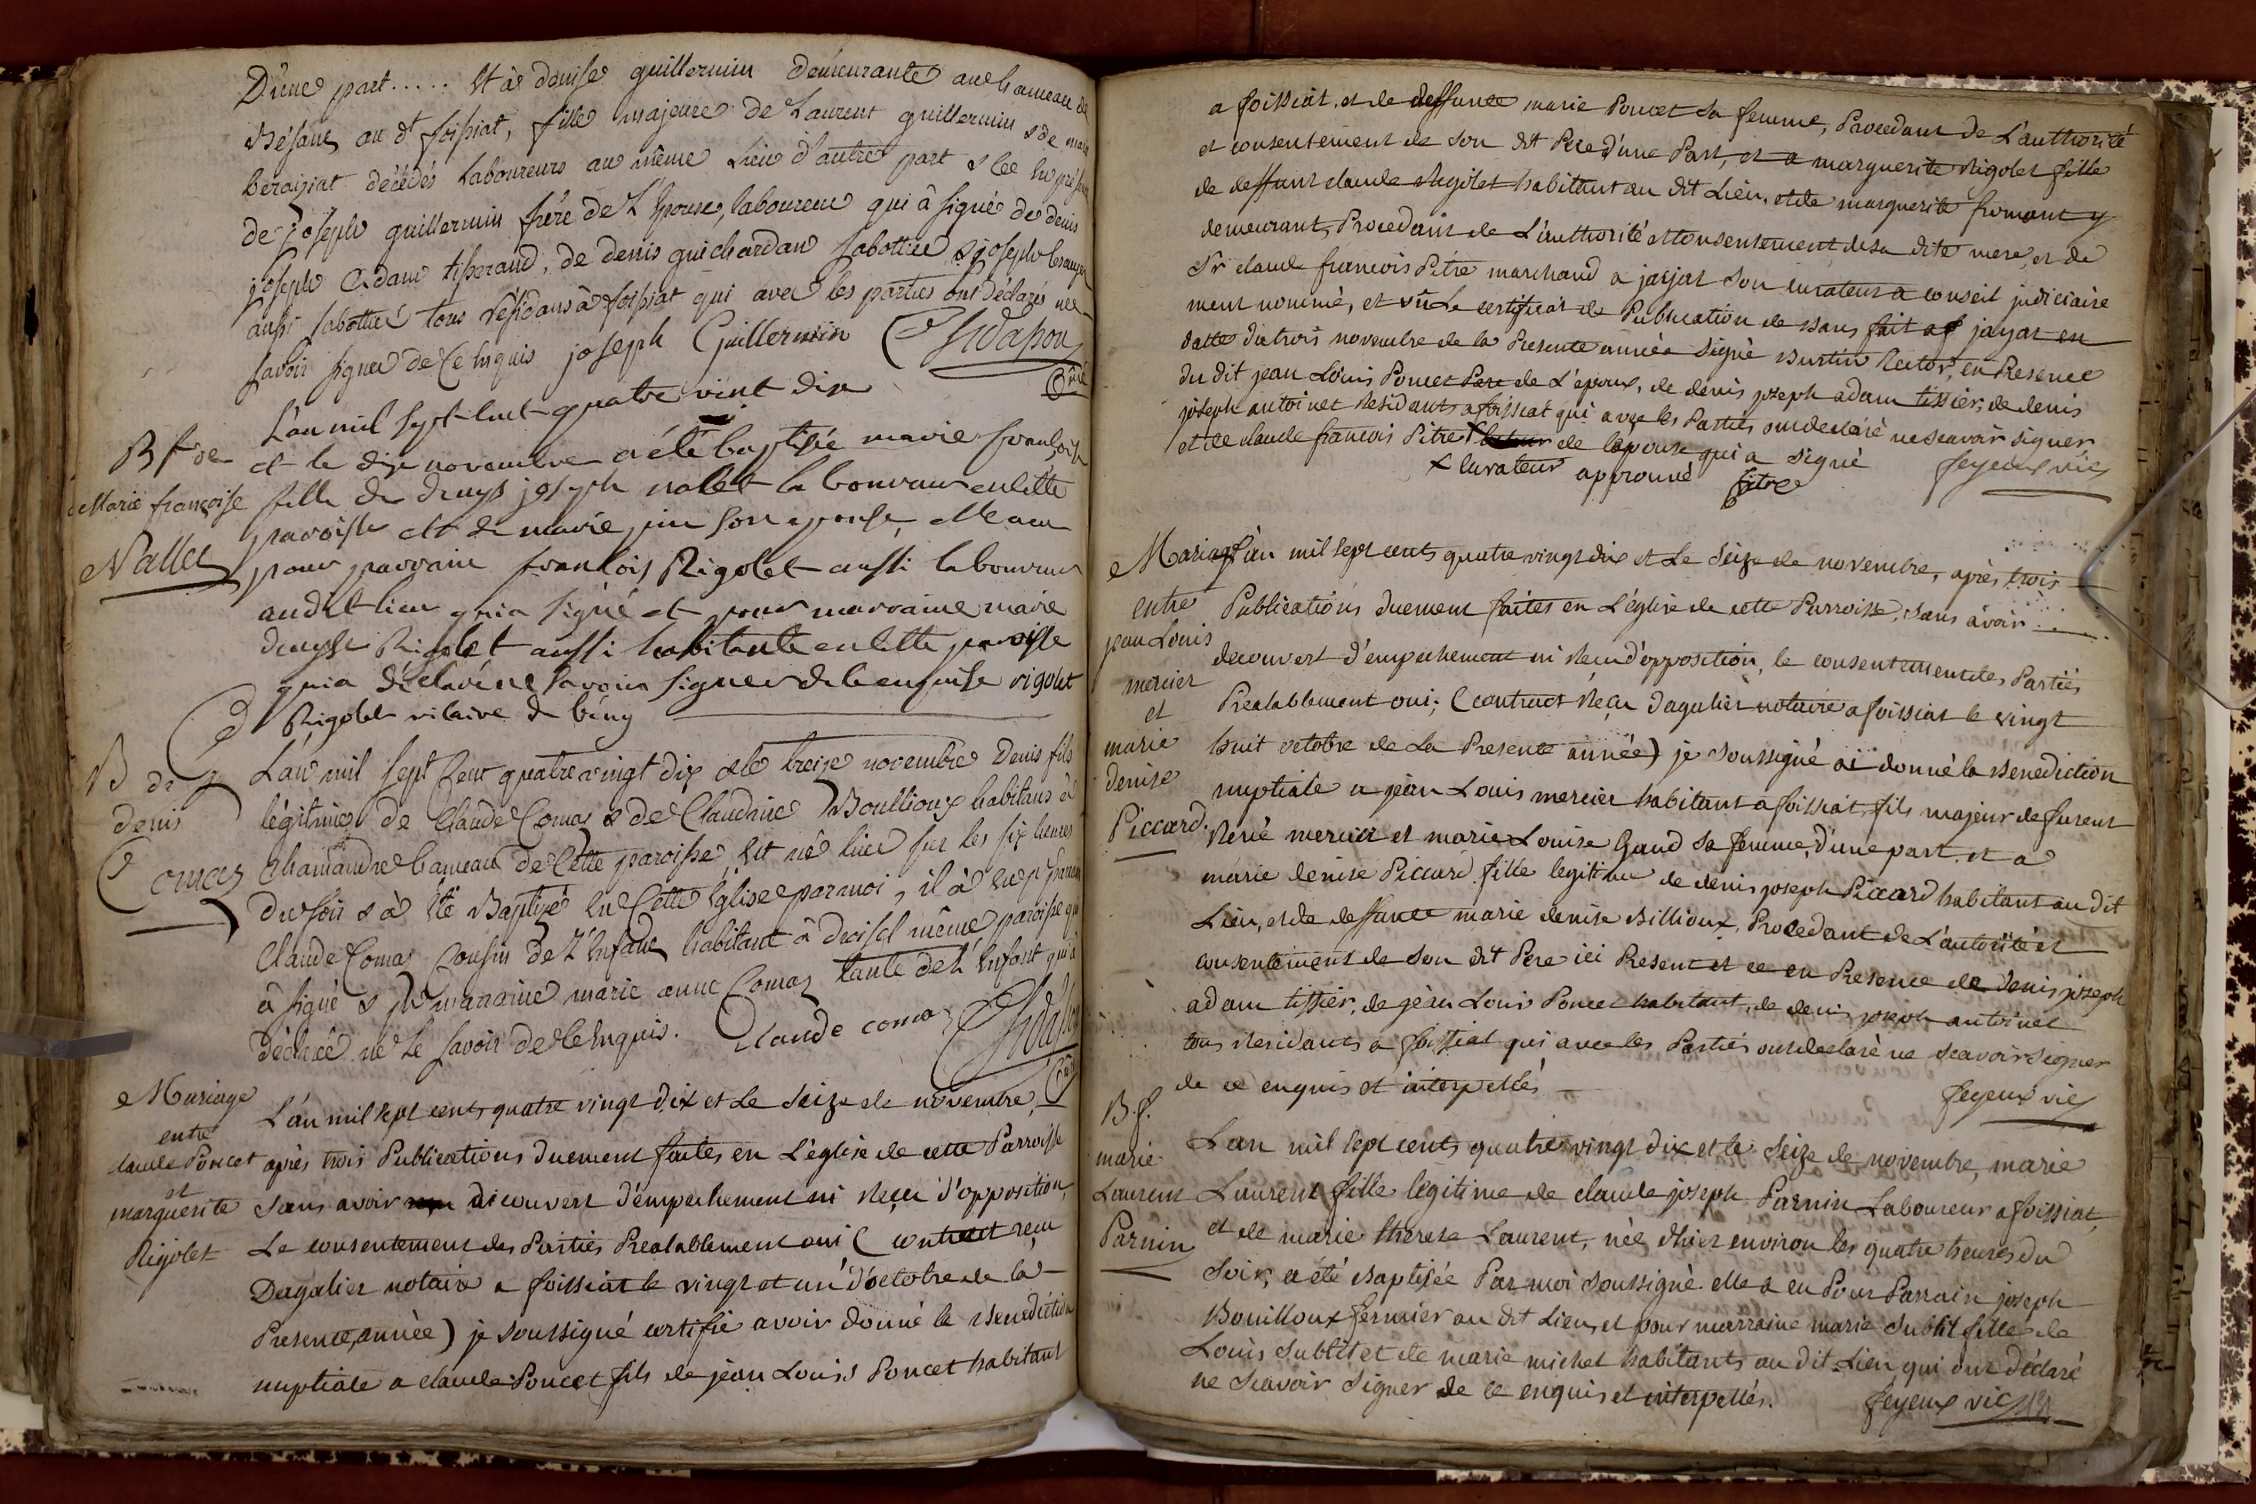 D'une part..... Et à denise guillermin demeurante au hameau de
Besant au dt foissiat, fille majeure de Laurent guillermin & de marie
beraiziat décédés Laboureurs au même Lieu d'autre part & ce en présence
de joseph guillermin frère de L'épouse, laboureur qui à signé de denis
joseph Adam tisserand, de denis guichardan sabottier & joseph
aussi sabottié tous résidans à foissiat qui avec les parties ont déclarés ne
savoir signer de ce enquis joseph Guillermin
L'an mil sept cent quatre vint dix
et le dix novembre a été baptisée marie françoise
fille de denys joseph nalet laboureur en cette
paroisse et de marie pin son epouse, elle a eu
pour parrain françois Rigolet aussi laboureur
audit lieu qui a signé et pour marraine marie
denyse Rigolet aussi habitante en cette paroisse
qui a déclaré ne savoir signer de ce enquise rigolet
Rigolet vicaire de bény
B f de
Marie françoise
Nallet
L'an mil sept Cent quatre vingt dix et le treize novembre Denis fils
légitime de Claude Comas & de Claudine Boullioux habitans à
Chamandre hameau de Cette paroisse, Est né hier sur les six heures
du soir & à été Baptisé en Cette Eglise par moi, il à eu pr parrain
Claude Comas Cousin de L'enfant habitant à même paroisse qui
à signé & pr marraine marie anne Comas tante de L'enfant qui a
déclaré ne Le savoir de Ce enquis. Claude comas
B de
denis
Comas
Mariage
entre
claude Poncet
et
marguerite
Rigolet
L'an mil sept cents quatre vingt dix et Le Seize de novembre,
après trois Publications duement faites en L'église de cette Parroisse
sans avoir decouvert d'empechement ni Reçu d'opposition,
Le consentement des Parties Prealablement oui (contract reçu
Dagalier notaire a foissiat le vingt et un d'octobre de la
Presente année) je soussigné certifie avoir donné la Benediction
nuptiale a claude Poncet fils de jean Louis Poncet habitant
a foissiat, et de deffunte marie Poncet sa femme, Procedant de L'authorité
et consentement de son dit Pere d'une Part, et a marguerite Rigolet fille
de deffunt claude Rigolet habitant au dit Lieu, et de marguerite fromont y
demeurant, Procedant de L'authorité et consentement de sa dite mere, et de
Sr claude francois Pitre marchand a jayat son curateur a conseil judiciaire
ment nommé, et vû Le certificat de Publication de Bans fait a jayat en
datte du trois novembre de la Presente année signé Burtin Rector, en Presence
du dit jean Louis Poncet Pere de L'epoux, de denis joseph adam tissier, de denis
joseph antoinet Residants a foissiat qui avec les Parties ont declaré ne scavoir signer
et de claude francois Pitre x de lepouse qui a signé
x curateur approuvé Pitre feyeux vic
Mariage
entre
jean Louis
mercier
et
marie
denise
Piccard.
L'an mil sept cents quatre vingt dix et Le Seize de novembre, après trois
Publications duement faites en L'église de cette Parroisse, sans avoir
decouvert d'empechement ni Recu d'opposition, le consentement des Parties
Prealablement oui; (contract Reçu Dagalier notaire a foissiat le vingt
huit octobre de La Presente année) je soussigné ai donné la Benediction
nuptiale a jean Louis mercier habitant a foissiat, fils majeur de furent
René mercier et marie Louise Gaud sa femme, d'une part, et a
marie denise Piccard fille legitime de denis joseph Piccard habitant au dit
Lieu, et de deffunte marie denise Billioux, Procedant de L'autorité et
consentement de son dit Pere ici Present et ce en Presence de denis joseph
adam tissier, de jean Louis Poncet habitant, de denis joseph antoinet
tous Residants a foissiat qui avec les Parties ont declaré ne scavoir signer
de ce enquis et interpellés
feyeux vic
B. f.
marie
Laurent
Parnin
L'an mil sept cents quatre vingt dix et le Seize de novembre, marie
Laurent fille légitime de claude joseph Parnin Laboureur a foissiat,
et de marie therese Laurent, née d'hier environ les quatre heures du
soir, a été Baptisée Par moi soussigné. elle a eu Pour Parrain joseph
Bouilloux fermier au dit Lieu, et pour marraine marie Subtit fille de
Louis Subtit et de marie michel habitants au dit Lieu qui ont déclaré
ne scavoir signer de ce enquis et interpellés. feyeux vic